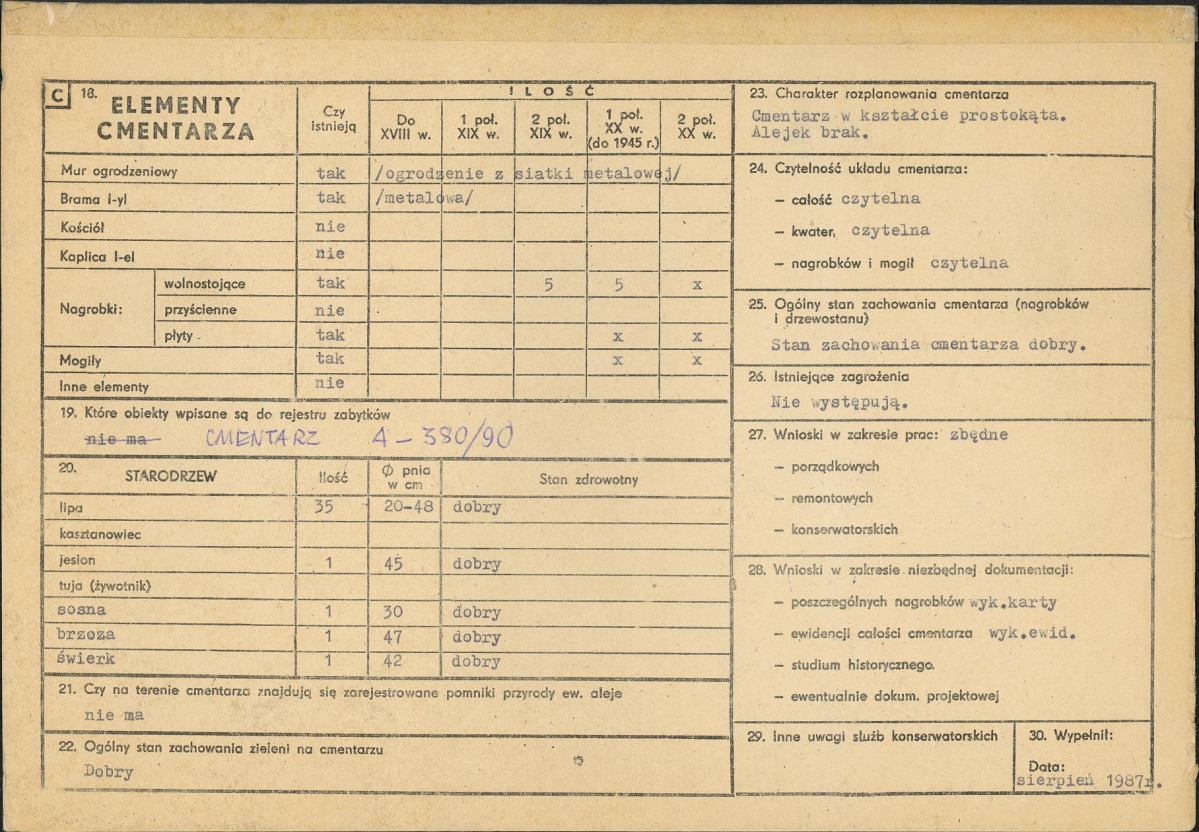 C 18. ELEMENTY CMENTARZA
Czy istnieją
ILOŚĆ
Do XVIII w.
1 poł. XIX w.
2 poł. XIX w.
1 poł. XX w. (do 1945 r.)
2 poł. XX w.
Mur ogrodzeniowy tak /ogrodzenie z siatki metalowej/
Brama l-yl tak /metalowa/
Kościół nie
Kaplica l-el nie
Nagrobki:
wolnostojące tak 5 5 x
przyścienne nie
płyty tak x x
Mogiły tak x x
Inne elementy nie
19. Które obiekty wpisane są do rejestru zabytków
nie ma CMENTARZ A-380/90
20. STARODRZEW Ilość Ø pnia w cm Stan zdrowotny
lipa 35 20-48 dobry
kasztanowiec
jesion 1 45 dobry
tuja (żywotnik)
sosna 1 30 dobry
brzoza 1 47 dobry
świerk 1 42 dobry
21. Czy na terenie cmentarza znajdują się zarejestrowane pomniki przyrody ew. aleje
nie ma
22. Ogólny stan zachowania zieleni na cmentarzu
Dobry
23. Charakter rozplanowania cmentarza
Cmentarz w kształcie prostokąta.
Alejek brak.
24. Czytelność układu cmentarza:
— całość czytelna
— kwater, czytelna
— nagrobków i mogił czytelna
25. Ogólny stan zachowania cmentarza (nagrobków
i drzewostanu)
Stan zachowania cmentarza dobry.
26. Istniejące zagrożenia
Nie występują.
27. Wnioski w zakresie prac: zbędne
— porządkowych
— remontowych
— konserwatorskich
28. Wnioski w zakresie niezbędnej dokumentacji:
— poszczególnych nagrobków wyk.karty
— ewidencji całości cmentarza wyk.ewid.
— studium historycznego.
— ewentualnie dokum. projektowej
29. Inne uwagi służb konserwatorskich
30. Wypełnił:
Data:
sierpień 1987r.